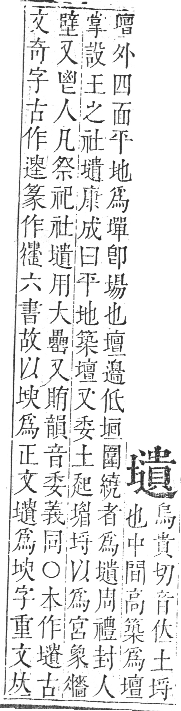 壝烏貴切音伏土埒
也中間高築爲壇
外四面平地爲墠卽場也壇邉低垣圍繞者爲壝周禮封人
掌設王之社壝康成曰平地築壇又委土起堳埒以爲宮象牆
壁又鬯人凡祭祀社壝用大罍又賄韻音委義同○本作壝古
文奇字古作篆作六書故以坱爲正文壝爲坱字重文𠀤